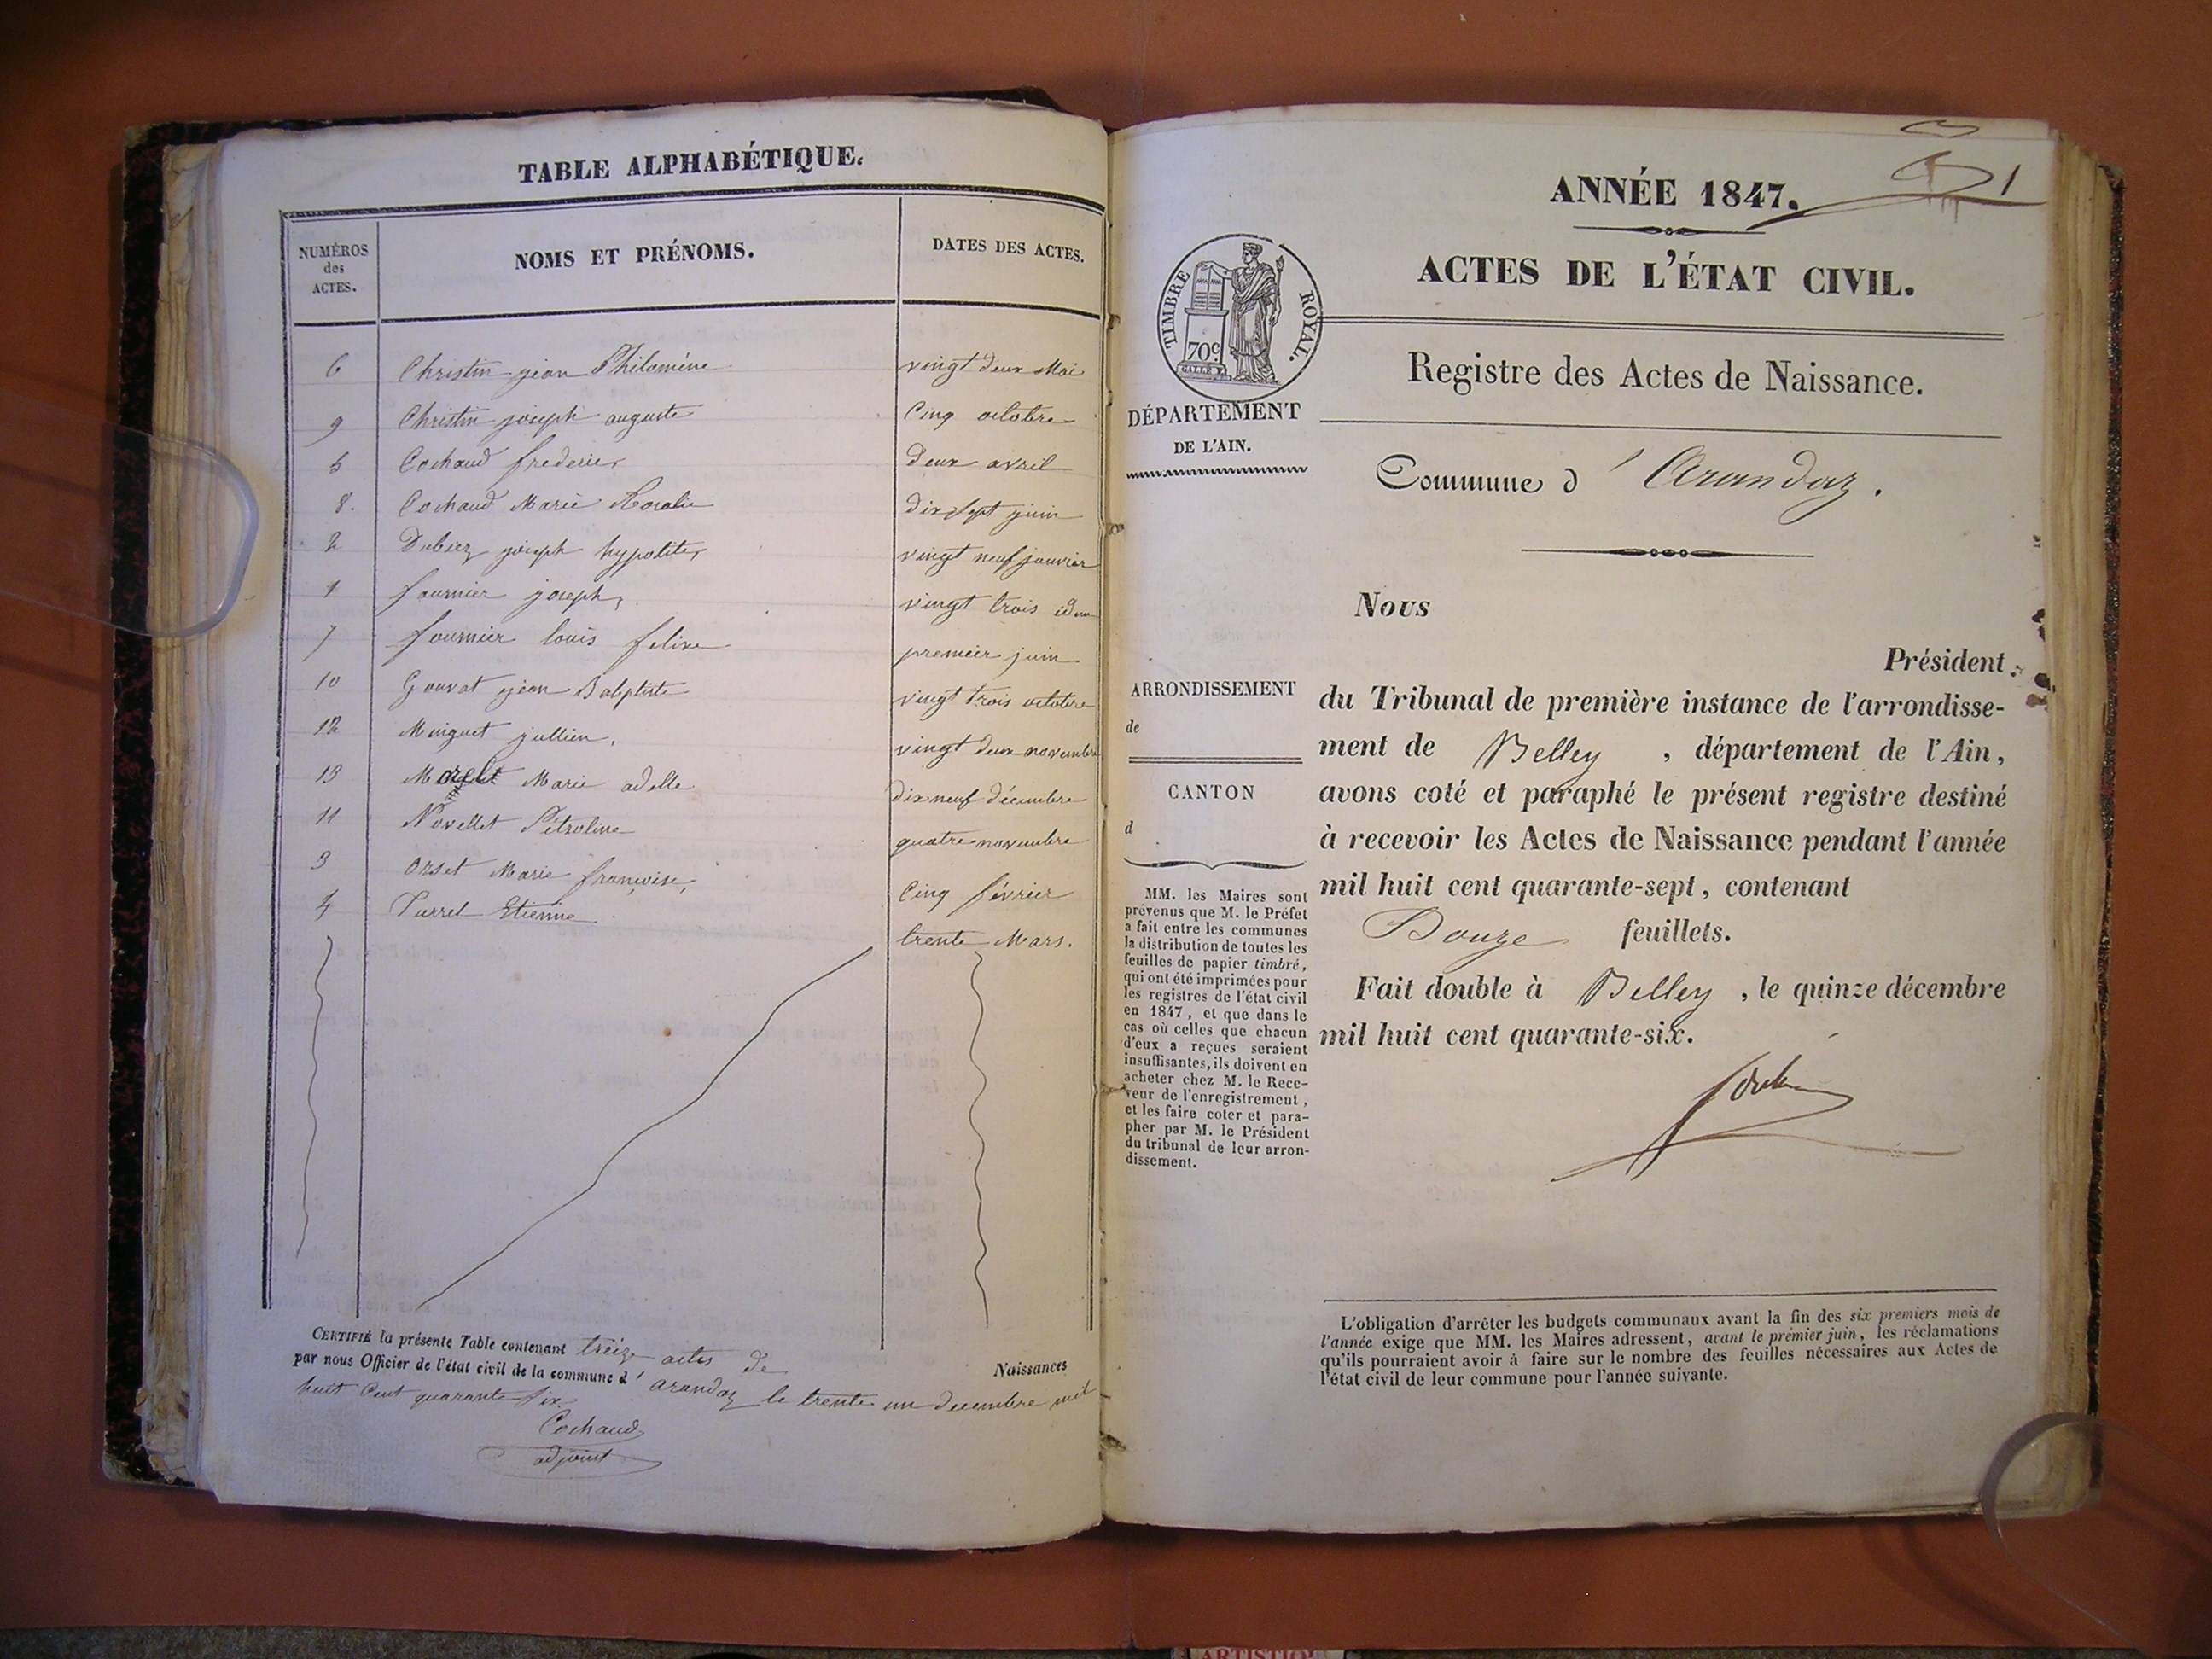 TABLE ALPHABÉTIQUE.
NUMÉROS des ACTES.
NOMS ET PRÉNOMS.
DATES DES ACTES.
6 Christin jean Philomène vingt deux Mai
9 Christin joseph auguste Cinq octobre
5 Cochaud frederic deux avril
8. Cochaud Marie Rosalie dix sept juin
2 Dubiez joseph hypolite vingt neuf janvier
1 fournier joseph vingt trois idem
7 fournier louis felixe premier juin
10 Gouvat jean Baleptiste vingt trois octobre
12 Minguet jullien, vingt deux novembre
13 Marie adelle dix neuf décembre
11 Novellet Pétroline quatre novembre
3 Orset Marie françoise, Cinq février
4 Purret Etienne trente Mars.
CERTIFIÉ la présente Table contenant treize actes de Naissances
par nous Officier de l'état civil de la commune d' arandaz le trente un decembre mil
huit Cent quarante six
Cochaud
adjoint
1
ANNÉE 1847.
ACTES DE L'ÉTAT CIVIL.
TIMBRE ROYAL.
70c.
GALLE F.
Registre des Actes de Naissance.
DÉPARTEMENT
DE L'AIN.
Commune d' Arandaz.
Nous
Président
du Tribunal de première instance de l'arrondisse-
ment de Belley , département de l'Ain,
avons coté et paraphé le présent registre destiné
à recevoir les Actes de Naissance pendant l'année
mil huit cent quarante-sept, contenant
Douze feuillets.
Fait double à Belley , le quinze décembre
mil huit cent quarante-six.
ARRONDISSEMENT
de
CANTON
d
MM. les Maires sont
prévenus que M. le Préfet
a fait entre les communes
la distribution de toutes les
feuilles de papier timbré,
qui ont été imprimées pour
les registres de l'état civil
en 1847, et que dans le
cas où celles que chacun
d'eux a reçues seraient
insuffisantes, ils doivent en
acheter chez M. le Rece-
veur de l'enregistrement,
et les faire coter et para-
pher par M. le Président
du tribunal de leur arron-
dissement.
L'obligation d'arrêter les budgets communaux avant la fin des six premiers mois de
l'année exige que MM. les Maires adressent, avant le premier juin, les réclamations
qu'ils pourraient avoir à faire sur le nombre des feuilles nécessaires aux Actes de
l'état civil de leur commune pour l'année suivante.